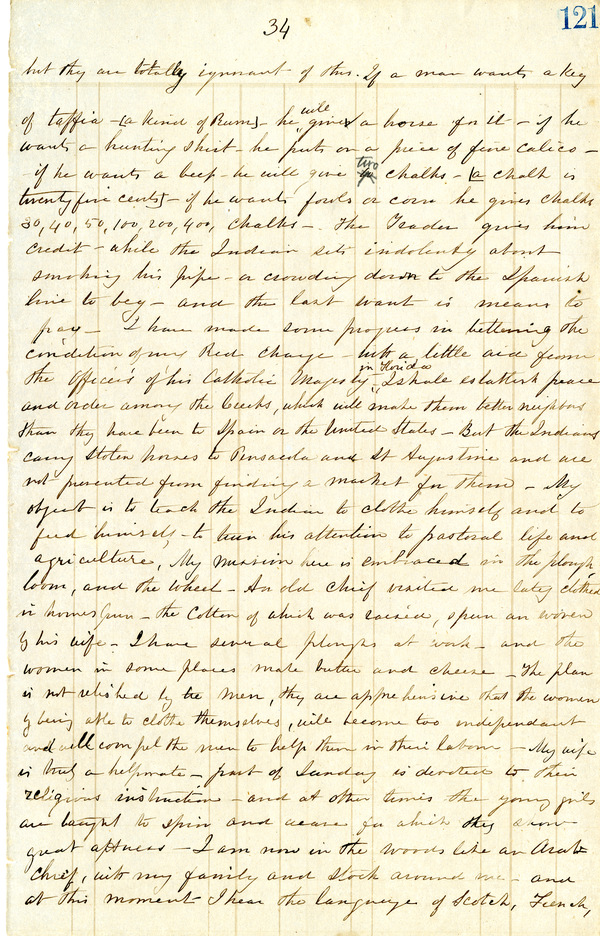 34
121
but they are totally ignorant of this. If a man wants a keg
of taffia - [a kind of Rum] - he will gives a horse for it - if he
wants a hunting shirt - he puts on a piece of fine calico -
if he wants a beef - he will give two chalks - [a chalk is
twenty five cents] - if he wants fowls or corn he gives chalks
30, 40, 50, 100, 200, 400, chalks - . The Trader gives him
credit - while the Indian sets indolently about
smoking his pipe - or crowding down to the Spanish
line to beg - and the last want is means to
pay - I have made some progress in bettering the
condition of my Red charge - with a little aid from
the Officers of his Catholic Majesty in Florida - I shall establish peace
and order among the Creeks, which will make them better neighbors
than they have been to Spain or the United States - But the Indians
carry stolen horses to Pensacola and St Augustine and are
not prevented from finding a market for them - My
object is to teach the Indian to clothe himself and to
feed himself - to turn his attention to pastoral life and
agriculture, My mission here is embraced in the plough,
loom, and the wheel - An old chief visited me lately clothed
in homespun - the cotton of which was raised, spun an woven
by his wife - I have several ploughs at work - and the
women in some places make butter and cheese - The plan
is not relished by the men, they are apprehensive that the women
by being able to clothe themselves, will become too independant
and will compel the men to help them in their labour - My wife
is truly a helpmate - part of Sunday is devoted to their
religious instruction - and at other times the young girls
are taught to spin and weave for which they show
great aptness - I am now in the woods like an Arab
chief, with my family and stock around me - and
at this moment I hear the language of Scotch, French,